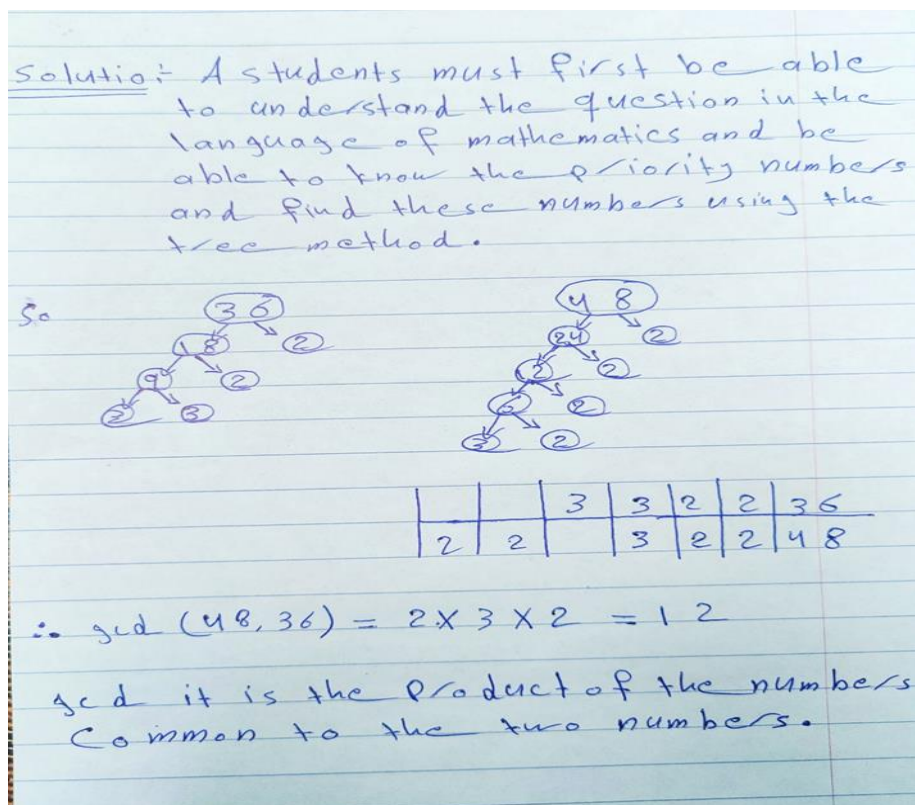 Solutio:- A students must first be able
to understand the question in the
language of mathematics and be
able to know the priority numbers
and find these numbers using the
tree method.
So
36 48
18 2 24 2
9 2 12 2
3 3 6 2
3 2
3 3 2 2 36
2 2 3 2 2 48
∴ gcd (48, 36) = 2 X 3 X 2 = 12
gcd it is the product of the numbers
common to the two numbers.